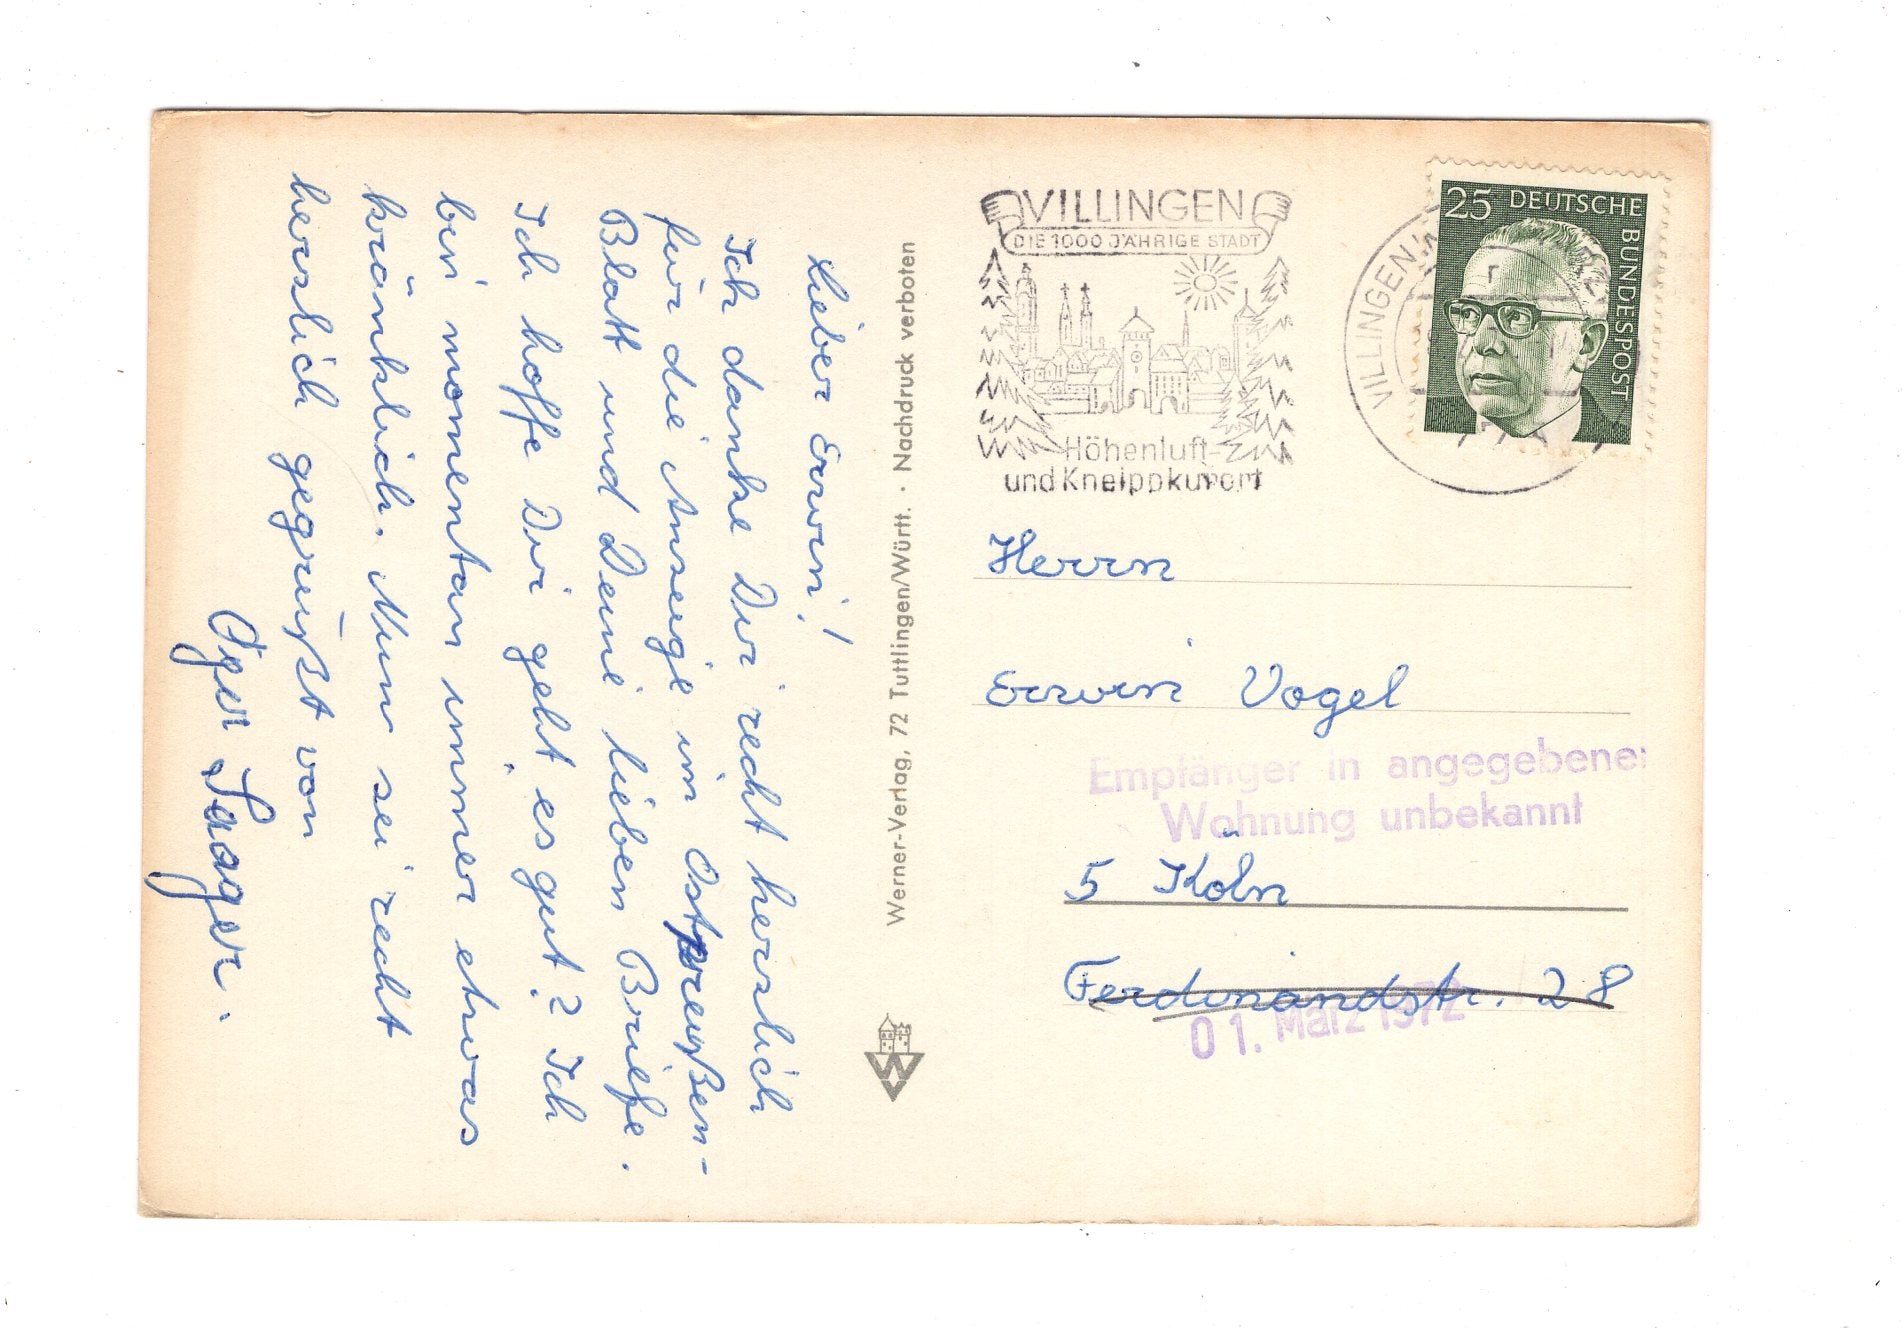 Lieber Erwin!
Ich danke Dir recht herzlich
für die Anzeige im Ostpreußen-
Blatt und Deine lieben Briefe.
Ich hoffe Dir geht es gut? Ich
bin momentan immer etwas
kränklich. Nun sei recht
herzlich gegrüßt von
Sager.
Werner-Verlag, 72 Tuttlingen/Württ. · Nachdruck verboten
W
VILLINGEN
DIE 1000 JÄHRIGE STADT
Höhenluft-
und Kneippkurort
VILLINGEN
25 DEUTSCHE BUNDESPOST
Herrn
Erwin Vogel
Empfänger in angegebener
Wohnung unbekannt
5 Köln
Ferdinandstr. 28
01. März 1972